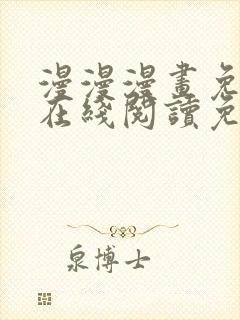 漫漫漫畫免
在綫閱讀免
泉博士